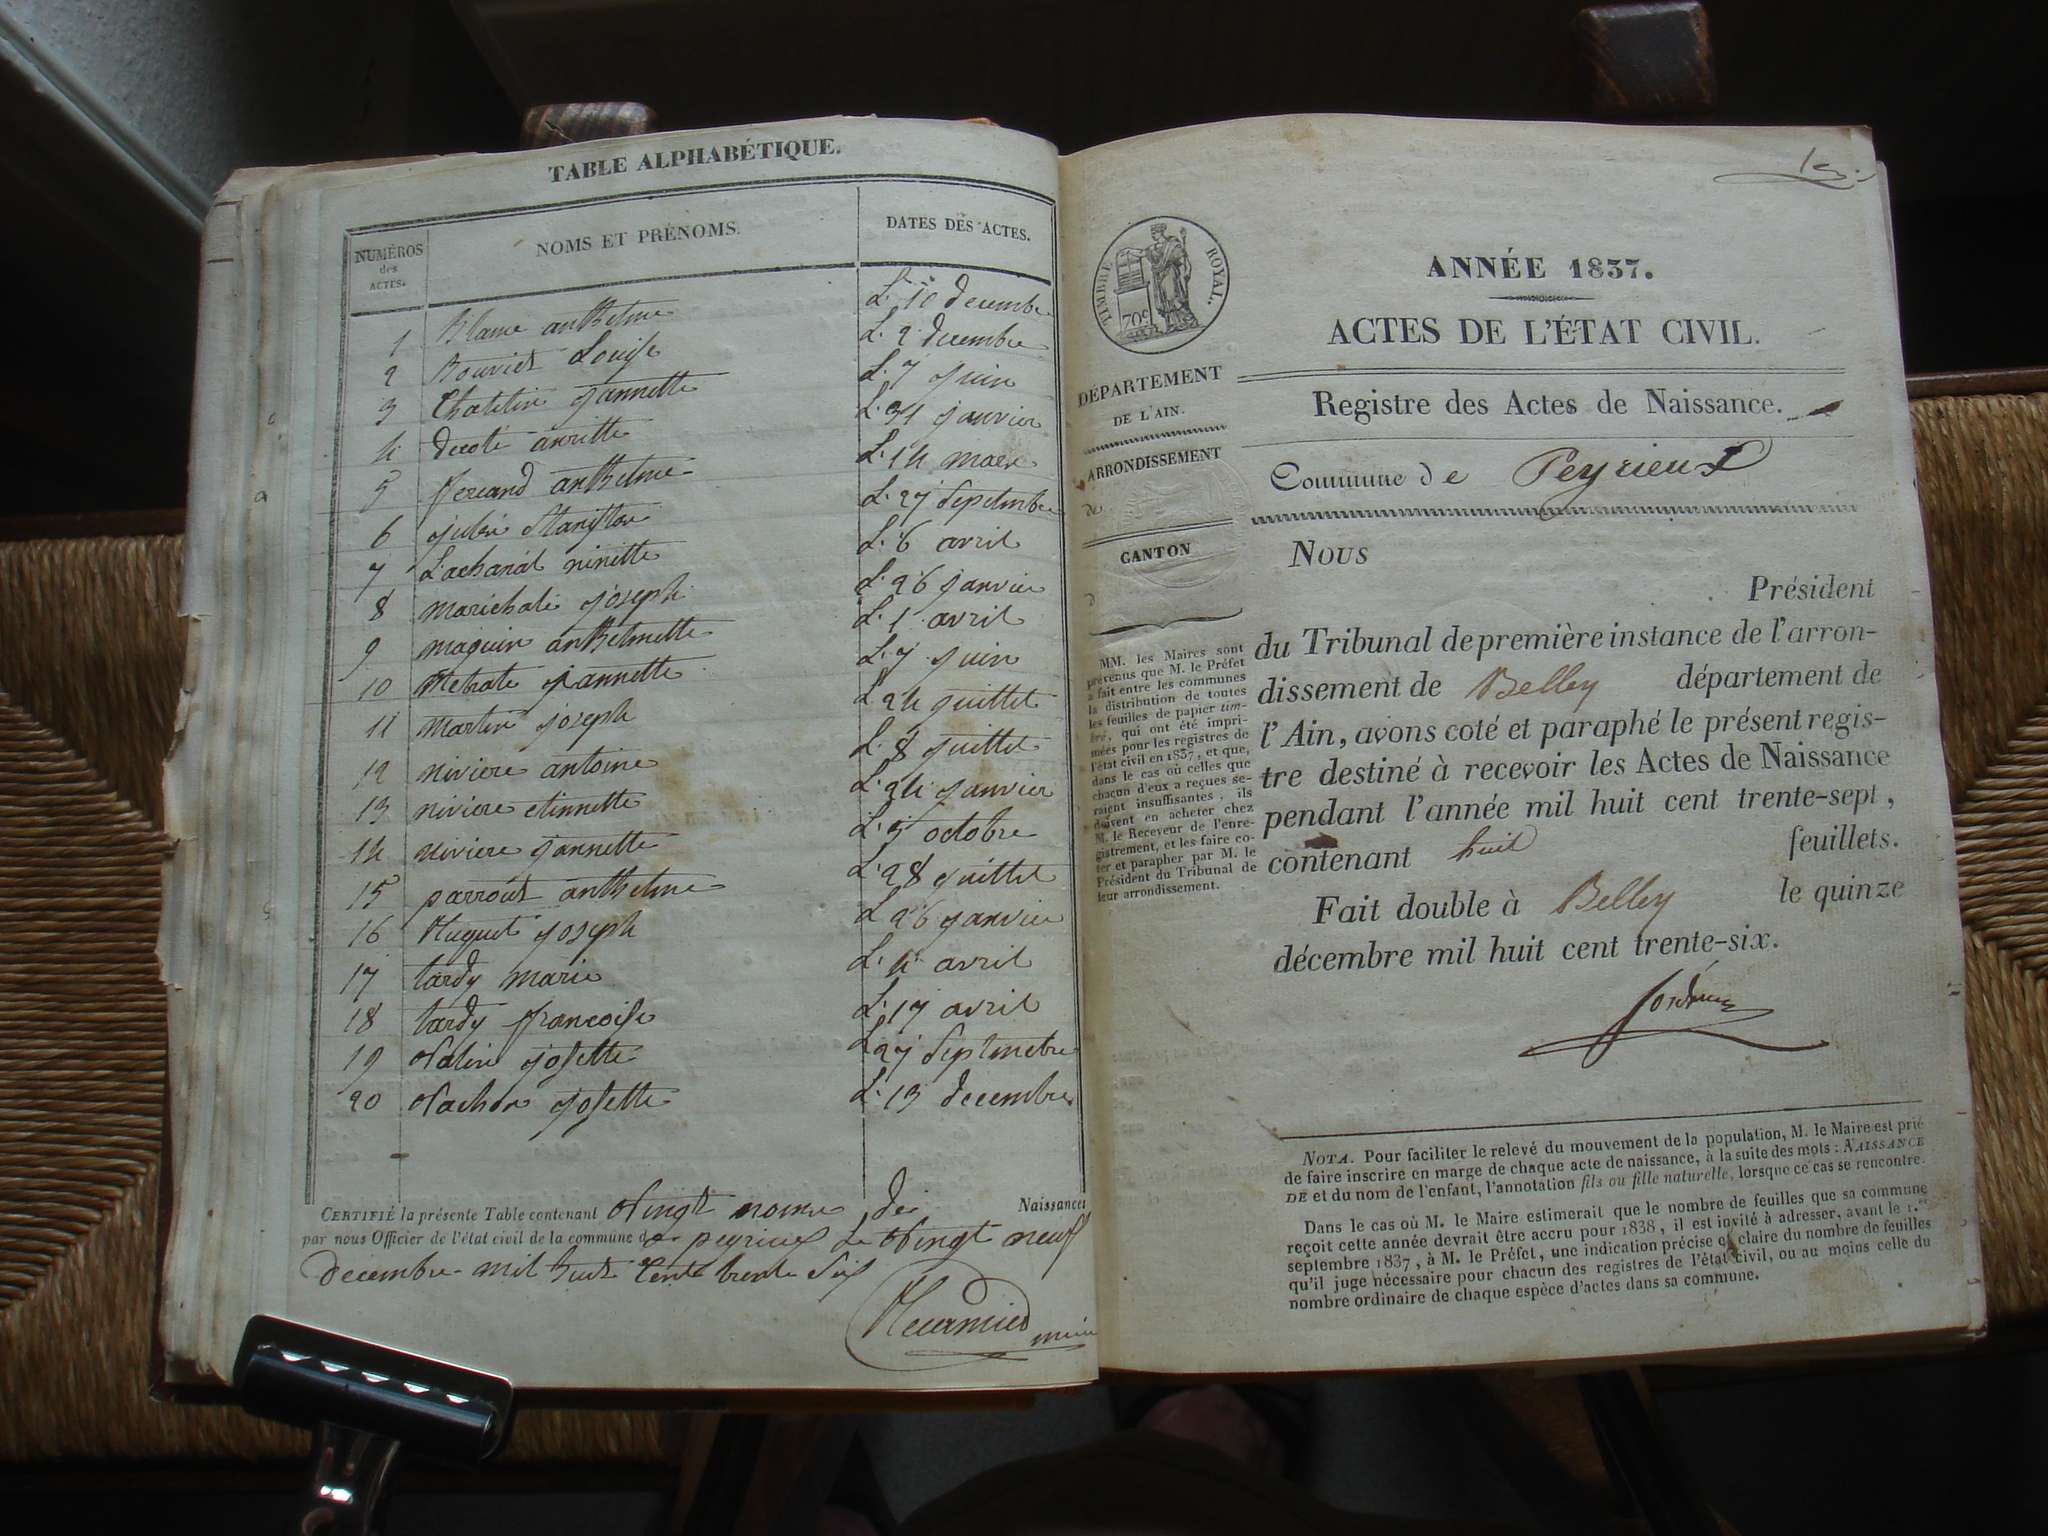 TABLE ALPHABÉTIQUE.
NUMÉROS des ACTES. NOMS ET PRÉNOMS. DATES DES ACTES.
1 Blame anthelme L. 10 decembre
2 Bouvier Louise L. 2 decembre
3 Chatelin jannette L. 7 juin
4 decoté anritte L. 31 janvier
5 ferrand anthelme L. 14 mars
6 jubin Stanislas L. 27 Septembre
7 Lachanal ninette L. 6 avril
8 marichale joseph L. 26 janvier
9 maquin anthelmette L. 1 avril
10 metrale jannette L. 7 juin
11 martin joseph L. 24 juillet
12 niviere antoine L. 8 juillet
13 niviere etinnette L. 24 janvier
14 niviere jannette L. 5 octobre
15 parrout anthelme L. 28 juillet
16 Huguet joseph L. 26 janvier
17 tardy marie L. 4 avril
18 tardy francoise L. 17 avril
19 Valin josette L. 27 Septembre
20 Vachon josette L. 13 decembre
CERTIFIÉ la présente Table contenant Vingt de Naissances
par nous Officier de l'état civil de la commune de peyrieux Le Vingt neuf
decembre mil huit Cent trente Six
maire
15.
TIMBRE ROYAL.
70c
ANNÉE 1837.
ACTES DE L'ÉTAT CIVIL.
Registre des Actes de Naissance.
Commune de Peyrieux
DÉPARTEMENT
DE L'AIN.
ARRONDISSEMENT
de
CANTON
d
MM. les Maires sont
prévenus que M. le Préfet
a fait entre les communes
la distribution de toutes
les feuilles de papier tim-
bré, qui ont été impri-
mées pour les registres de
l'état civil en 1837, et que,
dans le cas où celles que
chacun d'eux a reçues se-
raient insuffisantes, ils
doivent en acheter chez
M. le Receveur de l'enre-
gistrement, et les faire co-
ter et parapher par M. le
Président du Tribunal de
leur arrondissement.
NOUS
Président
du Tribunal de première instance de l'arron-
dissement de Belley département de
l'Ain, avons coté et paraphé le présent regis-
tre destiné à recevoir les Actes de Naissance
pendant l'année mil huit cent trente-sept,
contenant huit feuillets.
Fait double à Belley le quinze
décembre mil huit cent trente-six.
NOTA. Pour faciliter le relevé du mouvement de la population, M. le Maire est prié
de faire inscrire en marge de chaque acte de naissance, à la suite des mots : NAISSANCE
DE et du nom de l'enfant, l'annotation fils ou fille naturelle, lorsque ce cas se rencontre.
Dans le cas où M. le Maire estimerait que le nombre de feuilles que sa commune
reçoit cette année devrait être accru pour 1838, il est invité à adresser, avant le 1.er
septembre 1837, à M. le Préfet, une indication précise et claire du nombre de feuilles
qu'il juge nécessaire pour chacun des registres de l'état civil, ou au moins celle du
nombre ordinaire de chaque espèce d'actes dans sa commune.